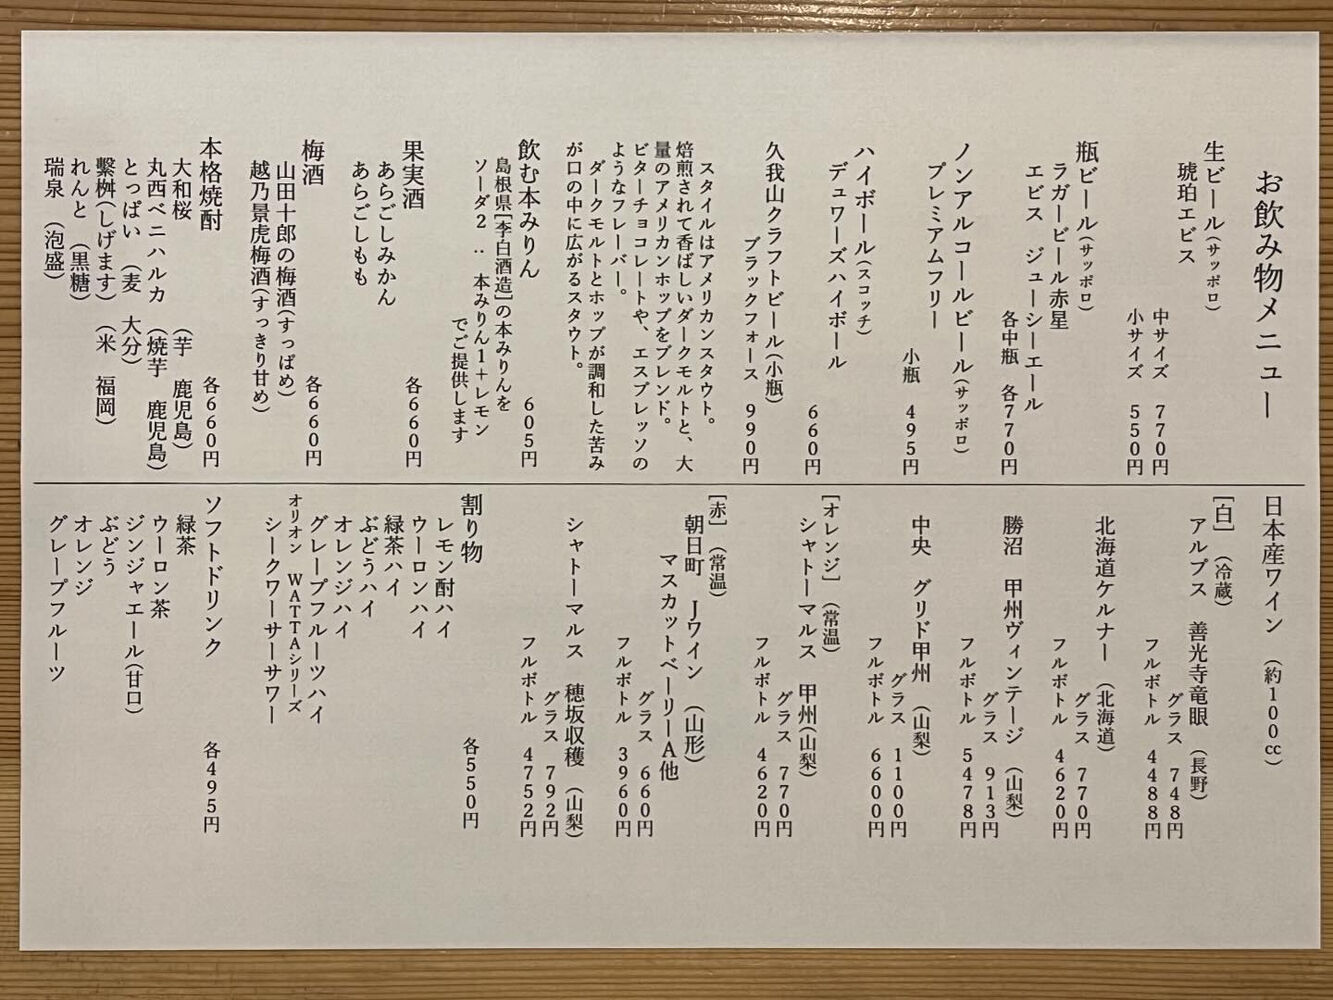 お飲み物メニュー
生ビール(サッポロ)
琥珀エビス
中サイズ 770円
小サイズ 550円
瓶ビール(サッポロ)
ラガービール赤星
エビス ジューシーエール
各中瓶 各770円
ノンアルコールビール(サッポロ)
プレミアムフリー
小瓶 495円
ハイボール(スコッチ)
デュワーズハイボール
660円
久我山クラフトビール(小瓶)
ブラックフォース 990円
スタイルはアメリカンスタウト。
焙煎されて香ばしいダークモルトと、大
量のアメリカンホップをブレンド。
ビターチョコレートや、エスプレッソの
ようなフレーバー。
ダークモルトとホップが調和した苦み
が口の中に広がるスタウト。
飲む本みりん 605円
島根県[李白酒造]の本みりんを
ソーダ2:本みりん1+レモン
でご提供します
果実酒 各660円
あらごしみかん
あらごしもも
梅酒 各660円
山田十郎の梅酒(すっぱめ)
越乃景虎梅酒(すっきり甘め)
本格焼酎 各660円
大和桜 (芋 鹿児島)
丸西ベニハルカ (焼芋 鹿児島)
とっぱい (麦 大分)
繫桝(しげます) (米 福岡)
れんと (黒糖)
瑞泉 (泡盛)
日本産ワイン (約100cc)
[白] (冷蔵)
アルプス 善光寺竜眼 (長野)
グラス 748円
フルボトル 4488円
北海道ケルナー (北海道)
グラス 770円
フルボトル 4620円
勝沼 甲州ヴィンテージ (山梨)
グラス 913円
フルボトル 5478円
中央 グリド甲州 (山梨)
グラス 1100円
フルボトル 6600円
[オレンジ] (常温)
シャトーマルス 甲州(山梨)
グラス 770円
フルボトル 4620円
[赤] (常温)
朝日町 Jワイン (山形)
マスカットベーリーA他
グラス 660円
フルボトル 3960円
シャトーマルス 穂坂収穫 (山梨)
グラス 792円
フルボトル 4752円
割り物 各550円
レモン酎ハイ
ウーロンハイ
緑茶ハイ
ぶどうハイ
オレンジハイ
グレープフルーツハイ
オリオン WATTAシリーズ
シークワーサーサワー
ソフトドリンク 各495円
緑茶
ウーロン茶
ジンジャエール(甘口)
ぶどう
オレンジ
グレープフルーツ